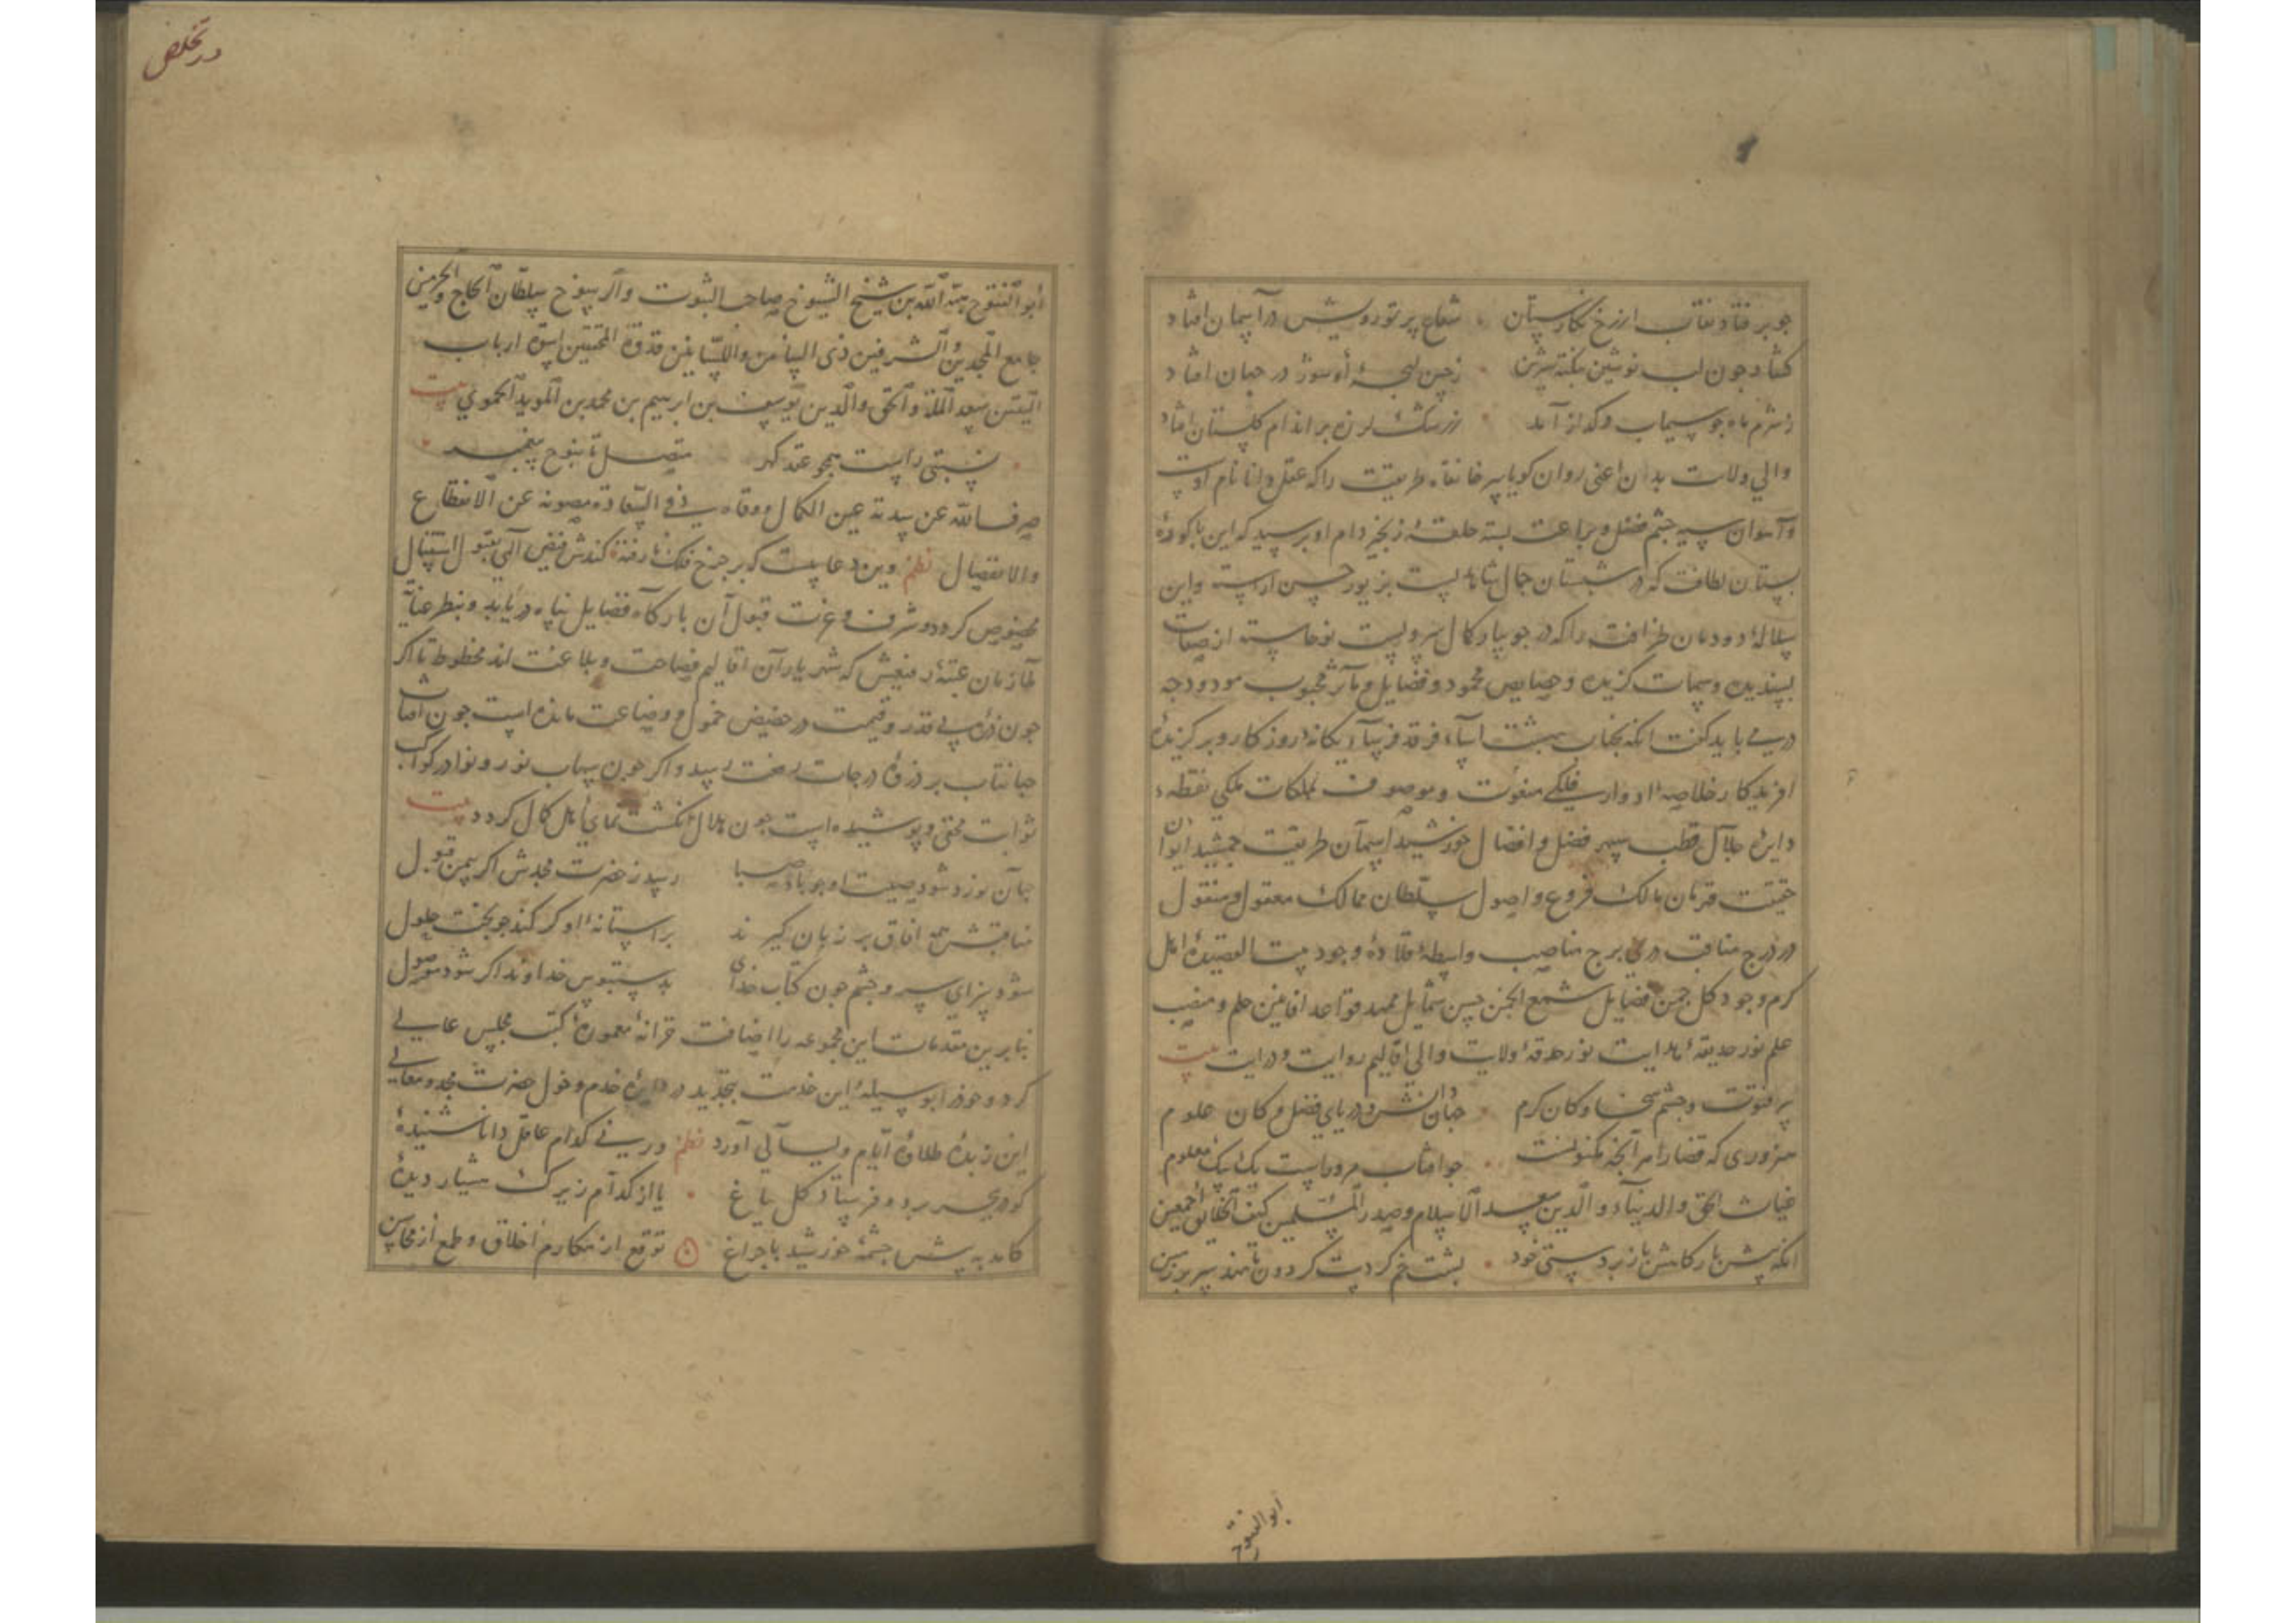 جو بر فتاد نقاب از رخ نکارستان شعاع پرتو رویش در آسمان افتاد
کشاد جون لب نوشین بنکته شیرین زجین لهجهٔ او سوز در جهان افتاد
زشرم ماه جو سیماب در کداز آمد ز رشک لرزه بر اندام کلستان افتاد
والی ولایت بدن اعنی روان کویا پیر خانقاه طریقت را که عقل دانا نام اوست
و آهوان سیه جشم فضل و براعت بسته حلقهٔ زنجیر دام او پرسید که این باکورهٔ
بستان لطافت که در شبستان جمال شاهدیست بزیور حسن اراسته واین
سلالهٔ دودمان ظرافت را که در جویبار کمال سرویست نوخاسته از صفات
پسندیده وسمات کزیده و خصایص محمود و فضایل و مآثر محبوب مودود جه
دری می باید کفت انکه بجناب بهشت آسا، فرقد فرسا، یکانه روزکار و برکزیدهٔ
افریدکار خلاصهٔ ادوار فلکی منعوت وموصوف بملکات ملکی نقطهٔ
دایره جلال قطب سپهر فضل و افضال خورشید آسمان طریقت جمشید ایوان
حقیقت قهرمان مالک فروع و اصول سلطان ممالک معقول و منقول
در درج مناقب دری برج مناصب واسطهٔ قلادهٔ وجود بیت القصیدهٔ اهل
کرم وجود کل جمن فضایل شمع انجمن حسن شمایل ممهد قواعد افانین حلم و منصب
علم نور حدیقهٔ هدایت نور حدقهٔ ولایت والی اقالیم روایت و درایت بیت
پر فتوت و جشم سخا و کان کرم جهان شرف دریای فضل و کان علوم
هنروری که قضا را هر آنجه مکنونست جو افتاب مر وراست یک بیک معلوم
غیاث الحق والدنیاء والدین سعد الاسلام وصدر المسلمین کهف الخلایق اجمعین
انکه پیش بارکاهش با زبردستی خود پشت خم کردست کردون تا نهد سر بر زمین
ابوالفتوح
در تخلص
ابو الفتوح هبة الله بن شیخ الشیوخ صاحب الثبوت والرسوخ سلطان الحاج والحرمین
جامع المجدین والشرفین ذی البیانین واللسانین قدوة المحققین اسوة ارباب
الیقین سعد الملة والحق والدین یوسف بن ابرهیم بن محمد بن المؤید الحموی بیت
نسبتی راست همجو عقد کهر متصل تا بنوح پیغمبر
صرف الله عن سدته عین الکمال ووقاه فی ذو السعادة مصونة عن الانقطاع
والانفصال نظم وین دعاییست که بر جرخ فلک نارفته کندش فیض الهی بقبول استقبال
مخصوص کردد و شرف و عزت قبول آن بارکاه فضایل پناه دریابد و بنظر عنایت
ملازمان عتبهٔ رفیعش که شهریار آن اقالیم فصاحت و بلاغت اند محظوظ تا اکر
جون ذره بی قدر و قیمت در حضیض خمول و وضاعت مانده است جون افتاب
جهانتاب بر ذروهٔ درجات رفعت رسید و اکر جون سهاب نور و نوادر کواکب
ثوابت مختفی و پوشیده است جون هلال انکشت نمای اهل کمال کردد بیت
جهان نورد شود صیت او جو باد صبا رسد ز حضرت مجدش اکر یمن قبول
مناقبتش همه افاق بر زبان کیرند بر استانهٔ او کر کند جو بخت حلول
شود سزای سر و جشم جون کتاب خدای بدستبوس خداوند اکر شود موصول
بنابرین مقدمات این مجموعه را اضافت خزانهٔ معمورهٔ کتب مجلس عالی
کرد و خود را بوسیلهٔ این خدمت بتجدید در دایرهٔ خدم و خول حضرت مجد و معالی
این زبدهٔ طلاوهٔ ایام و لیالی آورد نظم ور نی کدام عاقل دانا شنیدهٔ
کو در بحر برد و فرستاد کل بباغ یا از کدام زیرک هشیار دیدهٔ
کامد به پیش جشمهٔ خورشید با جراغ توقع از مکارم اخلاق و طمع از محاسن